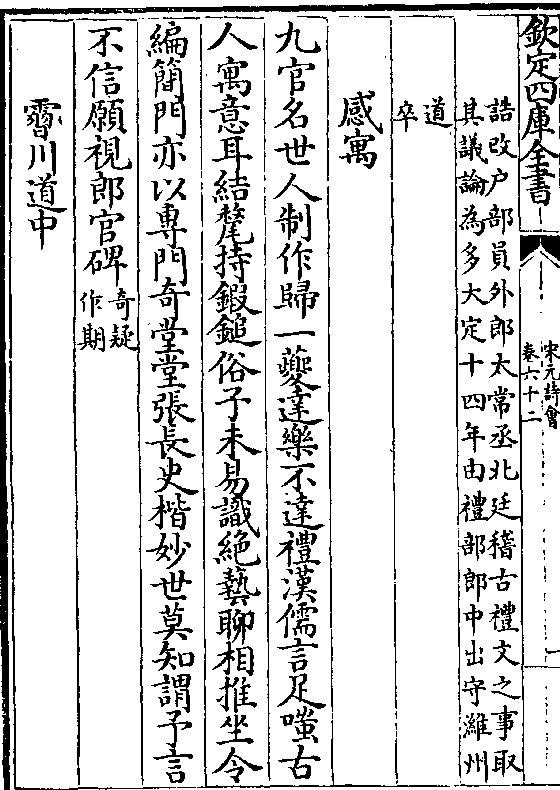 欽定四庫全書
宋元詩會
卷六十二
誥改户部員外郎太常丞北廷稽古禮文之事取
其議論為多大定十四年由禮部郎中出守濰州
道
卒
感寓
九官名世人制作歸一夔達樂不達禮漢儒言足嗤古
人寓意耳結髦持鍜鎚俗子未易識絶藝聊相推坐令
編簡門亦以專門奇堂堂張長史楷妙世莫知謂予言
不信願視郎官碑奇疑
作期
川道中